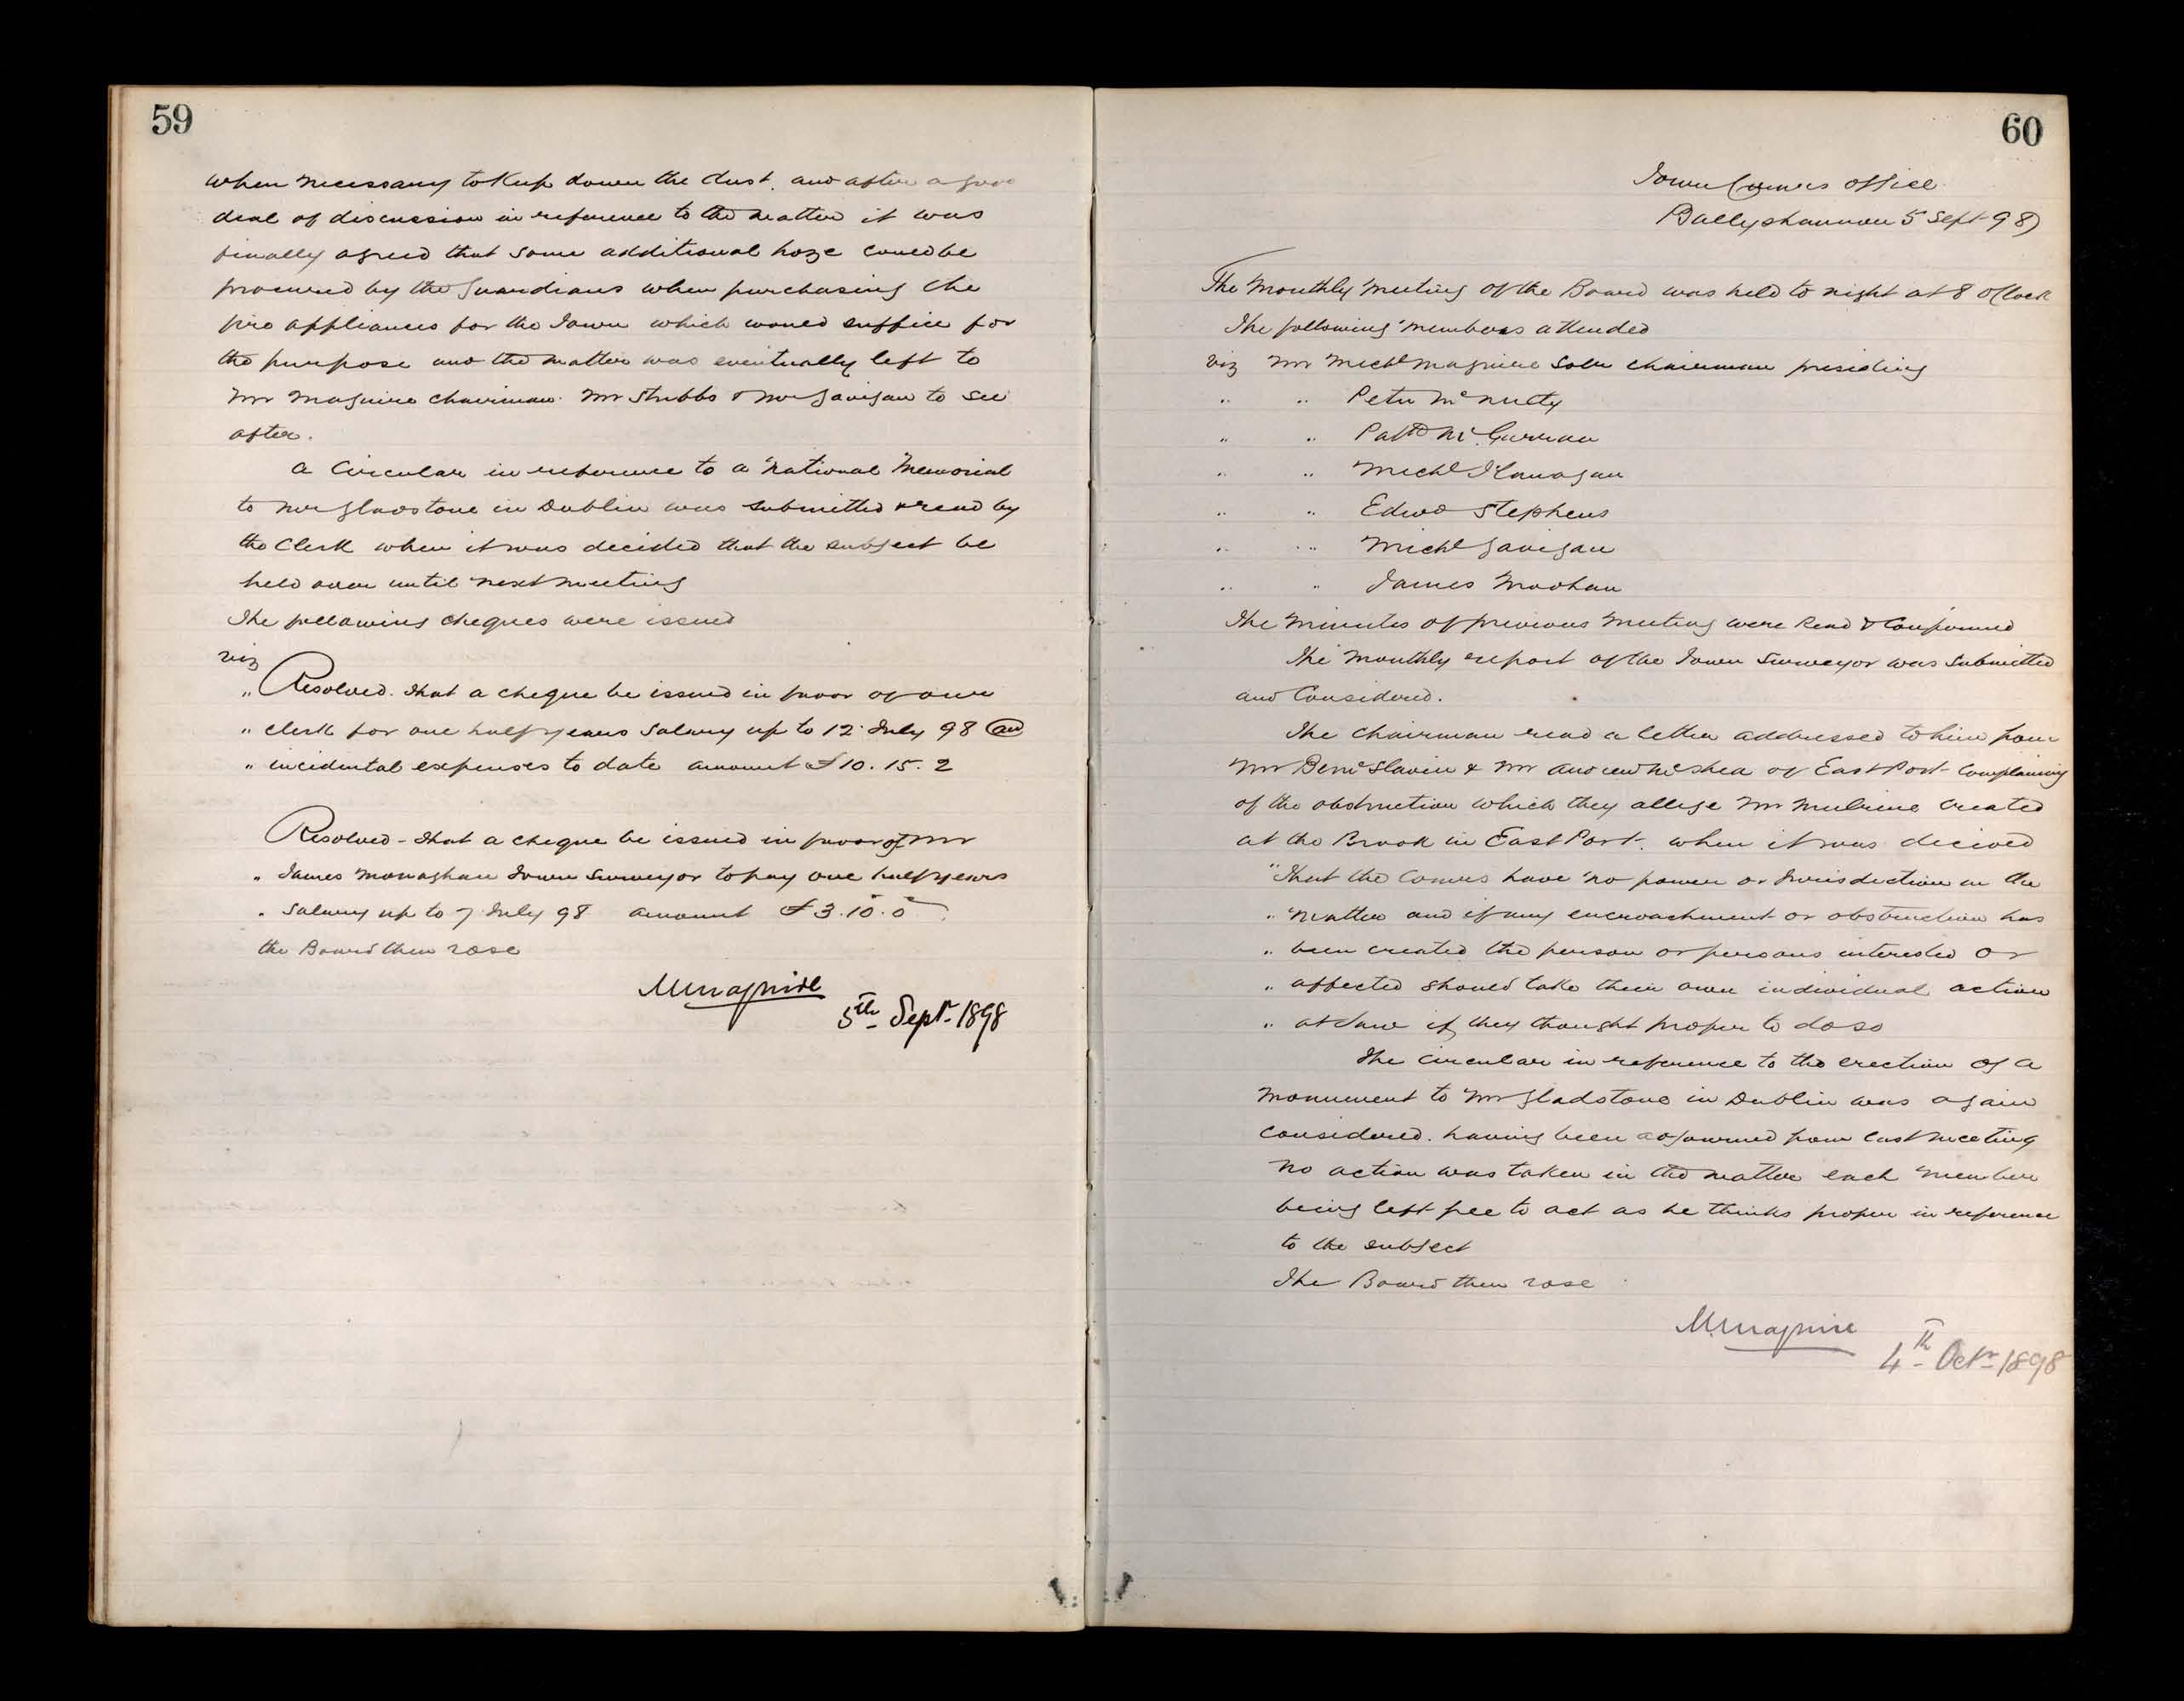 59
when necessary to keep down the dust. and after a good
deal of discussion in reference to the matter it was
finally agreed that some additional hoze could be
procured by the Guardians when purchasing the
fire appliances for the Town which would suffice for
the purpose and the matter was eventually left to
Mr Maguire Chairman. Mr Stubbs & Mr Gavigan to see
after.
A Circular in reference to a National Memorial
to Mr Gladstone in Dublin was submitted & read by
the Clerk when it was decided that the subject be
held over until next meeting
The following cheques were issued
viz
" Resolved. That a cheque be issued in favor of our
" clerk for one half years salary up to 12 July 98 and
" incidental expenses to date amount £10.15.2
Resolved - That a cheque be issued in favor of Mr
" James Monaghan Town Surveyor to pay one half years
" salary up to 7 July 98 amount £3.10.0
the Board then rose
M Maguire
5th Sept. 1898
60
Town Comrs office
Ballyshannon 5 Sept 98
The Monthly Meeting of the Board was held to night at 8 oClock
The following members attended
viz Mr Michl Maguire Solr chairman presiding
" " Peter McNulty
" " Patk McGurran
" " Michl Flanagan
" " Edwd Stephens
" " Michl Gavigan
" " James Moohan
The Minutes of previous Meeting were Read & Confirmed
The Monthly report of the Town Surveyor was submitted
and Considered.
The Chairman read a letter addressed to him from
Mr Bernd Slavin & Mr Andrew McShea of East Port Complaining
of the obstruction which they allege Mr Mulrine created
at the Brook in East Port. when it was decided
"That the Comrs have no power or Jurisdiction in the
" matter and if any encroachment or obstruction has
" been created the person or persons interested or
" affected should take their own individual action
" at Law if they thought proper to do so
The circular in reference to the erection of a
monument to Mr Gladstone in Dublin was again
considered. having been adjourned from last meeting
No action was taken in the matter each member
being left free to act as he thinks proper in reference
to the subject
The Board then rose
M Maguire
4th Octr 1898